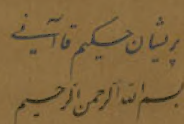 پریشان حکیم قاآنی
بسم الله الرحمن الرحیم